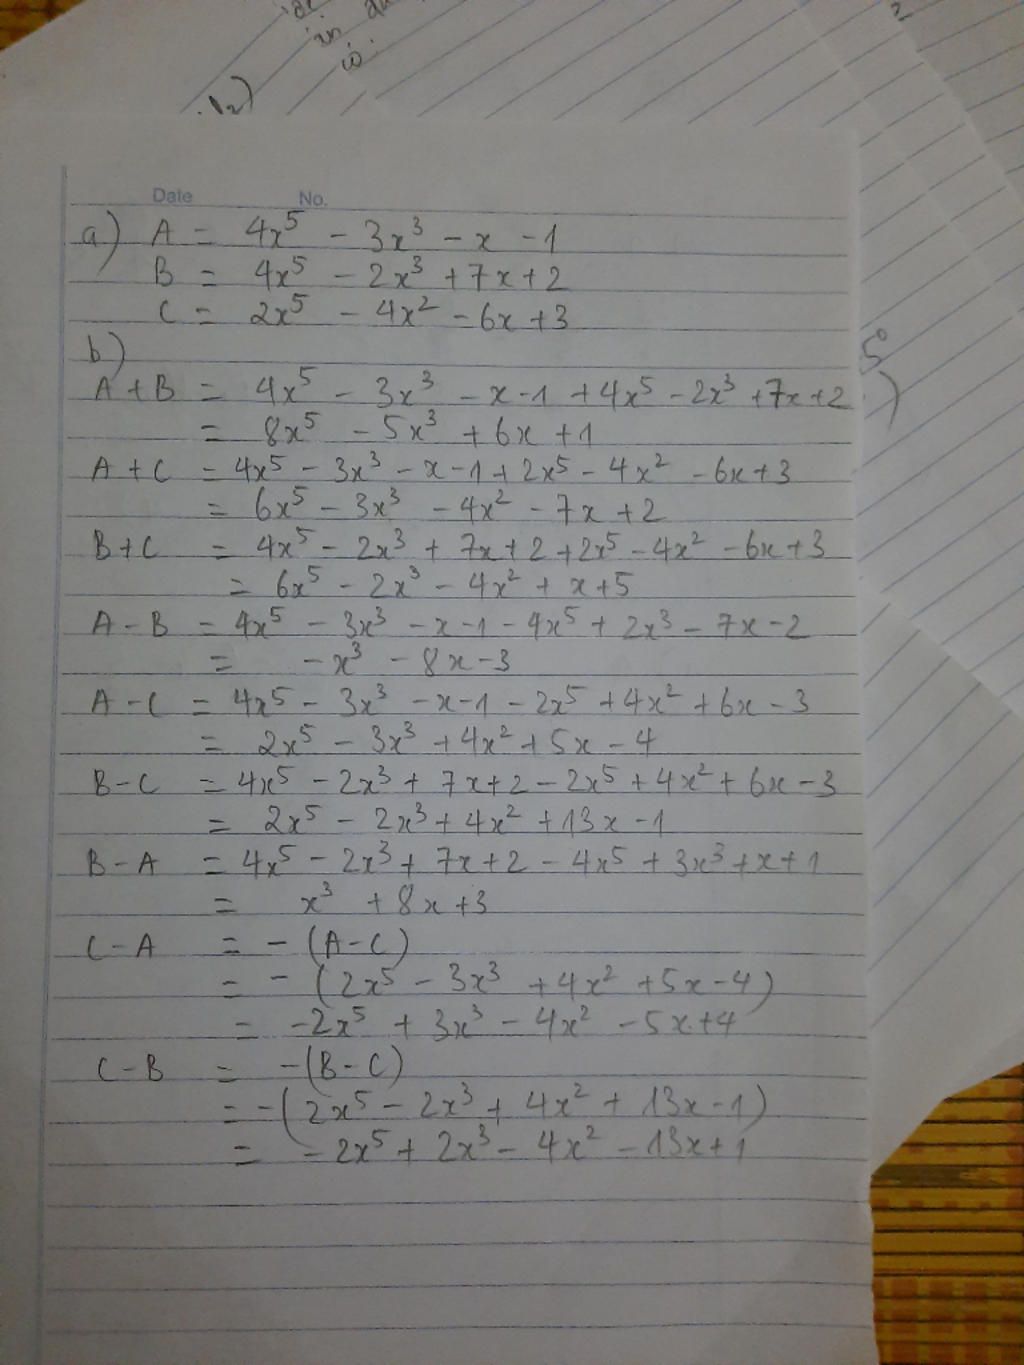 Date No.
a) A = 4x⁵ - 3x³ - x - 1
B = 4x⁵ - 2x³ + 7x + 2
C = 2x⁵ - 4x² - 6x + 3
b)
A + B = 4x⁵ - 3x³ - x - 1 + 4x⁵ - 2x³ + 7x + 2
= 8x⁵ - 5x³ + 6x + 1
A + C = 4x⁵ - 3x³ - x - 1 + 2x⁵ - 4x² - 6x + 3
= 6x⁵ - 3x³ - 4x² - 7x + 2
B + C = 4x⁵ - 2x³ + 7x + 2 + 2x⁵ - 4x² - 6x + 3
= 6x⁵ - 2x³ - 4x² + x + 5
A - B = 4x⁵ - 3x³ - x - 1 - 4x⁵ + 2x³ - 7x - 2
= - x³ - 8x - 3
A - C = 4x⁵ - 3x³ - x - 1 - 2x⁵ + 4x² + 6x - 3
= 2x⁵ - 3x³ + 4x² + 5x - 4
B - C = 4x⁵ - 2x³ + 7x + 2 - 2x⁵ + 4x² + 6x - 3
= 2x⁵ - 2x³ + 4x² + 13x - 1
B - A = 4x⁵ - 2x³ + 7x + 2 - 4x⁵ + 3x³ + x + 1
= x³ + 8x + 3
C - A = - (A - C)
= - (2x⁵ - 3x³ + 4x² + 5x - 4)
= -2x⁵ + 3x³ - 4x² - 5x + 4
C - B = - (B - C)
= - (2x⁵ - 2x³ + 4x² + 13x - 1)
= - 2x⁵ + 2x³ - 4x² - 13x + 1